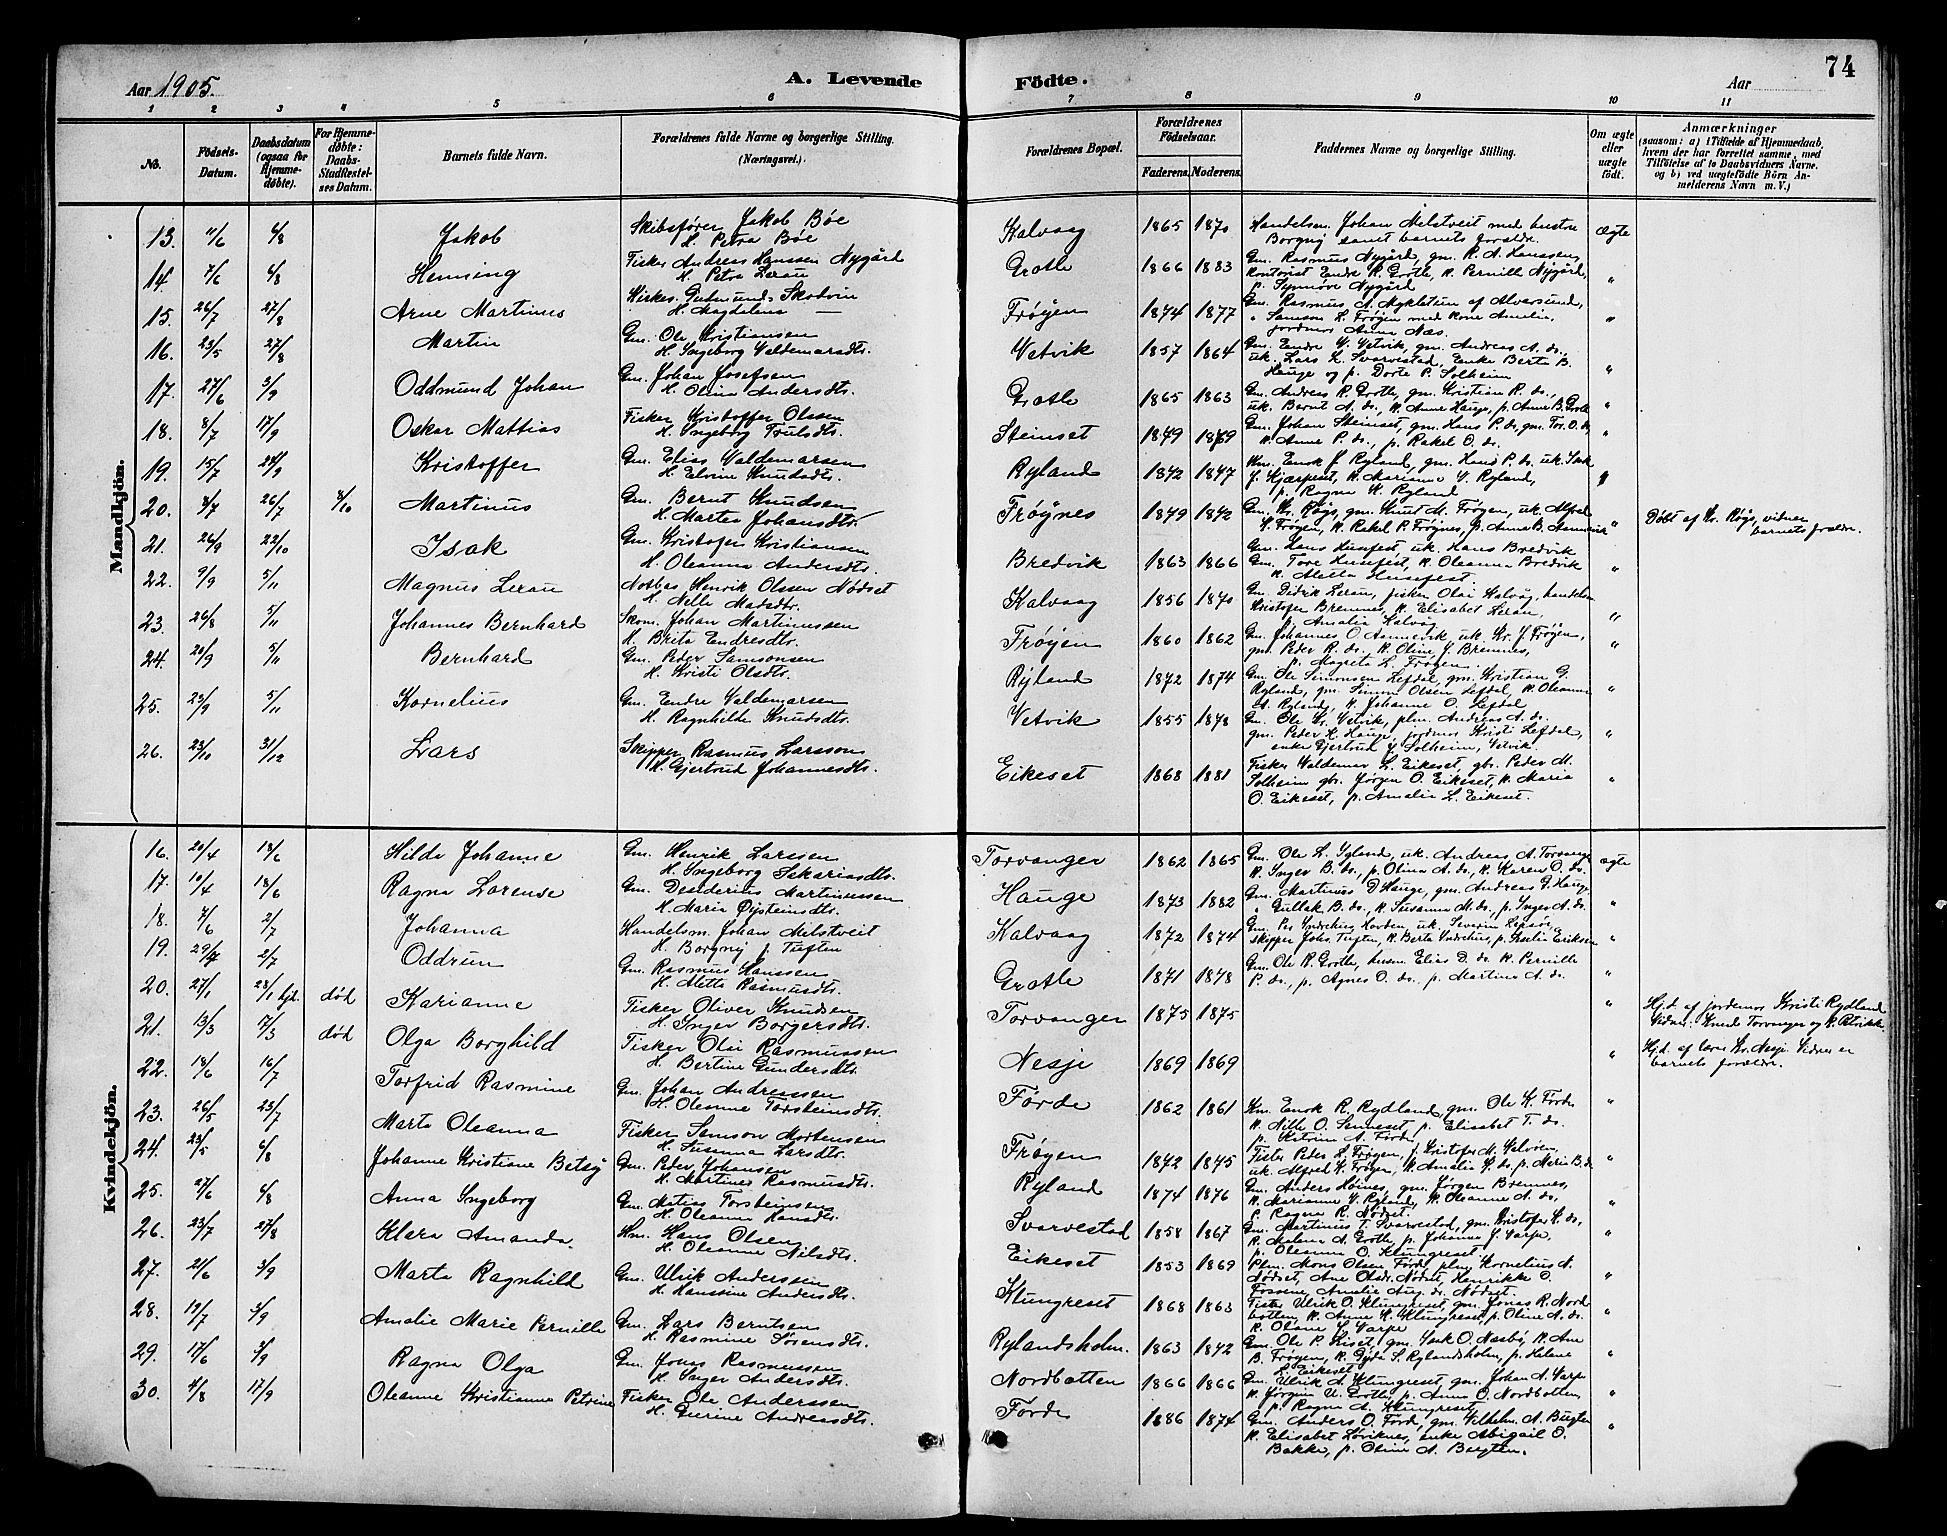 Aar 1905.
A. Levende Födte.
Aar
74
1 2 3 4 5 6 7 8 9 10 11
No.
Födsels-
Datum.
Daabsdatum
(ogsaa for
Hjemme-
døbte).
For Hjemme-
døbte:
Daabs-
Stadfæstel-
ses Datum.
Barnets fulde Navn.
Forældrenes fulde Navne og borgerlige Stilling.
(Næringsvei.)
Forældrenes Bopæl.
Forældrenes
Födselsaar.
Faderens. Moderens.
Faddernes Navne og borgerlige Stilling.
Om ægte
eller
uægte
födt.
Anmærkninger
(saasom: a) i Tilfælde af Hjemmedaab,
hvem der har forrettet samme, med
Tilföielse af to Daabsvidners Navne.
og b) ved uægtefödte Börn An-
melderens Navn m. V.)
Mandkjön.
13. 11/6 6/8 Jakob Skibsfører Jakob Bøe
H. Petra Bøe Kalvaag 1865 1870 Handelsm. Johan Melstveit med hustru
Borgny samt barnets forældre. ægte
14. 7/6 6/8 Henning Fisker Andreas Hanssen Nygård
H. Petra Lerau Grotle 1866 1883 Gm. Rasmus Nygård, gm. R. A. Hanssen,
kontorist Endre R. Grotle, k. Pernille Nygård,
p. Synnøve Nygård "
15. 26/7 27/8 Arne Martinus Skodvin
H. Magdalena — Frøyen 1874 1877 Gm. Rasmus A. Mykletun af Alversund,
" Samson L. Frøyen med kone Amalia,
jordmor Anna Næs. "
16. 23/5 27/8 Martin Gm. Ole Kristiansen
H. Ingeborg Valdemarsdtr. Vetvik 1857 1864 Gm. Endre V. Vetvik, gm. Andreas A. ds.
uk. Lars L. Svarvestad, Enke Berta B.
Hauge og p. Dorte P. Solheim "
17. 27/6 3/9 Oddmund Johan Gm. Johan Josefsen
H. Olina Andersdtr. Grotle 1865 1863 Gm. Andreas R. Grotle, gm. Kristian R. ds.,
uk. Bernt A. ds., k. Anne Hauge, p. Anne B. Grotle "
18. 8/7 17/9 Oskar Mattias Fisker Kristoffer Olsen
H. Ingeborg Trulsdtr. Steinset 1849 1869 Gm. Johan Steinset, gm. Hans P. ds, gm. Tor. O. ds,
k. Anne P. ds., p. Rakel O. ds. "
19. 15/7 24/9 Kristoffer Gm. Elias Valdemarsen
H. Elvine Knudsdtr. Ryland 1872 1877 Km. Enok J. Ryland, gm. Hans P. ds. uk. Isak
J. k. Marianne V. Ryland,
p. Ragna K. Ryland "
20. 8/7 26/7 8/10 Martinus Gm. Bernt Knudsen
H. Marta Johansdtr. Frøynes 1879 1872 Gm. Kr. Røys, gm. Knut M. Frøyen, uk. Alfred
K. Frøyen, k. Rakel P. Frøynes, p. Anna B. " Døbt af Kr. Røys, vidner
barnets forældre.
21. 26/9 22/10 Isak Gm. Kristofer Kristiansen
H. Oleanna Andersdtr. Bredvik 1863 1866 Gm. Hans Husefest, uk. Hans Bredvik
Gm. Tore Husefest, k. Oleanna Bredvik
k. Metta Husefest. "
22. 9/9 5/11 Magnus Lerau Notbas Henrik Olsen Nødset
H. Nelle Madsdtr. Kalvaag 1856 1870 Gm. Didrik Lerau, fisker Olai Kalvåg, handelsm.
Kristofer Bremnes, k. Elisabet Lerau,
p. Amalia Kalvåg "
23. 26/8 5/11 Johannes Bernhard Skom. Johan Martinussen
H. Brita Endresdtr. Frøyen 1860 1862 Gm. Johannes O. uk. Kr. J. Frøyen,
gm. Peder R. ds. k. Oline J. Bremnes,
p. Magreta L. Frøyen. "
24. 20/9 5/11 Bernhard Gm. Peder Samsonsen
H. Kristi Olsdtr. Ryland 1872 1874 Gm. Ole Simonsen Lefdal, gm. Kristian G.
Ryland, gm. Simon Olsen Lefdal, k. Oleanna
A. Ryland, k. Johanne O. Lefdal "
25. 23/9 5/11 Kornelius Gm. Endre Valdemarsen
H. Ragnhilde Knudsdtr. Vetvik 1855 1878 Gm. Ole Kr. Vetvik, plm. Andreas A. ds.
gm. Peder K. Hauge, jordmor Kristi Lefdal,
enke Gjertrud J. Solheim, Vetvik "
26. 23/10 31/12 Lars Skipper Rasmus Larsson
H. Gjertrud Johannesdtr. Eikeset 1868 1881 Fisker Valdemar L. Eikeset, gbr. Peder M.
Solheim gbr. Jørgen O. Eikeset, k. Maria
O. Eikeset, p. Amalia L. Eikeset. "
Kvindekjön.
16. 20/4 18/6 Hilda Johanne Gm. Henrik Larssen
H. Ingeborg Sakariasdtr. Torvanger 1862 1865 Gm. Ole L. uk. Andreas A. Torvanger
k. Inger B. ds., p. Olina A. ds., k. Karen O. ds. ægte
17. 10/4 18/6 Ragna Lorense Gm. Desiderius Martinussen
H. Maria Øysteinsdtr. Hauge 1873 1882 Gm. Martinus D. Hauge, gm. Andreas G. Hauge
" Gullak B. ds., k. Susanna M. ds., p. Inger A. ds. "
18. 7/6 2/7 Johanna Handelsm. Johan Melstveit
H. Borgny f. Tuften Kalvaag 1872 1874 Gm. Per Hovden, uk. Severin
skipper Johs. Tuften, k. Berta p. Eriksen "
19. 29/4 2/7 Oddrun Gm. Rasmus Hanssen
H. Metta Rasmusdtr. Grotle 1871 1878 Gm. Ole R. Grotle, Elias D. ds. k. Pernille
P. ds., p. Agnes O. ds. p. Martina A. ds. "
20. 27/1 28/1 hjd. død Karianne Fisker Oliver Knudsen
H. Inger Borgersdtr. Torvanger 1875 1875 " Hjd. af jordemor Kristi Rydland
Vidner: Knud Torvanger og
21. 13/3 17/3 død Olga Borghild Fisker Olai Rasmussen
H. Bertine Gundersdtr. Nesje 1869 1869 " Hjd. af lærer Kr. Nesje. Vidner er
barnets forældre.
22. 18/6 16/7 Torfrid Rasmine Gm. Johan Andreassen
H. Oleanne Torsteinsdtr. Førde 1862 1861 Km. Enok R. Rydland, gm. Ole K. Førde
k. Nille O. Senneset, p. Elisabet T. ds.
p. Katrina A. Førde "
23. 26/5 23/7 Marta Oleanna Fisker Samson Mortensen
H. Susanna Larsdtr. Frøyen 1872 1875 Fisker Peder L. Frøyen, f. Kristofer M. Kalvøen,
uk. Alfred K. Frøyen, k. Amalia S. ds, p. Maria B. ds "
24. 23/5 6/8 Johanne Kristiane Betsy Gm. Peder Johansen
H. Martine Rasmusdtr. Ryland 1874 1876 Gm. Anders Høines, gm. Jørgen Bremnes,
k. Marianne V. Ryland, k. Oleanne A. ds.
p. Ragna R. Nødset. "
25. 27/6 6/8 Anna Ingeborg Gm. Matias Torsteinsen
H. Oleanna Hansdtr. Svarvestad 1858 1867 Gm. Martinus T. Svarvestad, gm. Kristofer K. ds,
k. Malena A. Grotle, p. Johanna J. Varpe,
p. Oleanna O. Klungreset. "
26. 23/7 27/8 Klara Amanda. Km. Hans Olsen
H. Oleanne Nilsdtr. Eikeset 1853 1869 Plm. Mons Olsen Førde, plm. Kornelius N.
Nødset, Ane Olsdr. Nødset, Henrikke O.
Fossene, Amalie Aug. dr. Nødset. "
27. 21/6 3/9 Marta Ragnhild Gm. Ulrik Anderssen
H. Hanssine Andersdtr. Klungreset 1868 1863 Fisker Ulrik O. Klungreset, gm. Jonas R. Nord-
botten, k. Anne K. Klungreset, p. Oline A. ds.
k. Oliane J. Varpe "
28. 19/7 3/9 Amalie Marie Pernille Gm. Lars Berntsen
H. Rasmine Sørensdtr. Rylandsholm. 1863 1872 Gm. Ole P. Liset, gm. Isak O. Næsbø, k. Ane
B. Frøyen, k. Gyda S. Rylandsholm, p. Helene
L. Eikeset "
29. 17/6 3/9 Ragna Olga Gm. Jonas Rasmussen
H. Inger Andersdtr. Nordbotten 1866 1866 Gm. Ulrik A. Klungreset, gm. Johan A. Varpe
k. Jørgine U. Grotle, p. Anna O. Nordbotten,
p. Ragna A. Klungreset. "
30. 4/8 17/9 Oleanne Kristianna Petrine Fisker Ole Anderssen
H. Gurine Andreasdtr. Førde 1886 1874 Gm. Anders O. Førde, gm. Vilhelm A. Bugten
k. Elisabet Løviknes, enke Abigail O.
Bakke, p. Olina A. Bugten. "